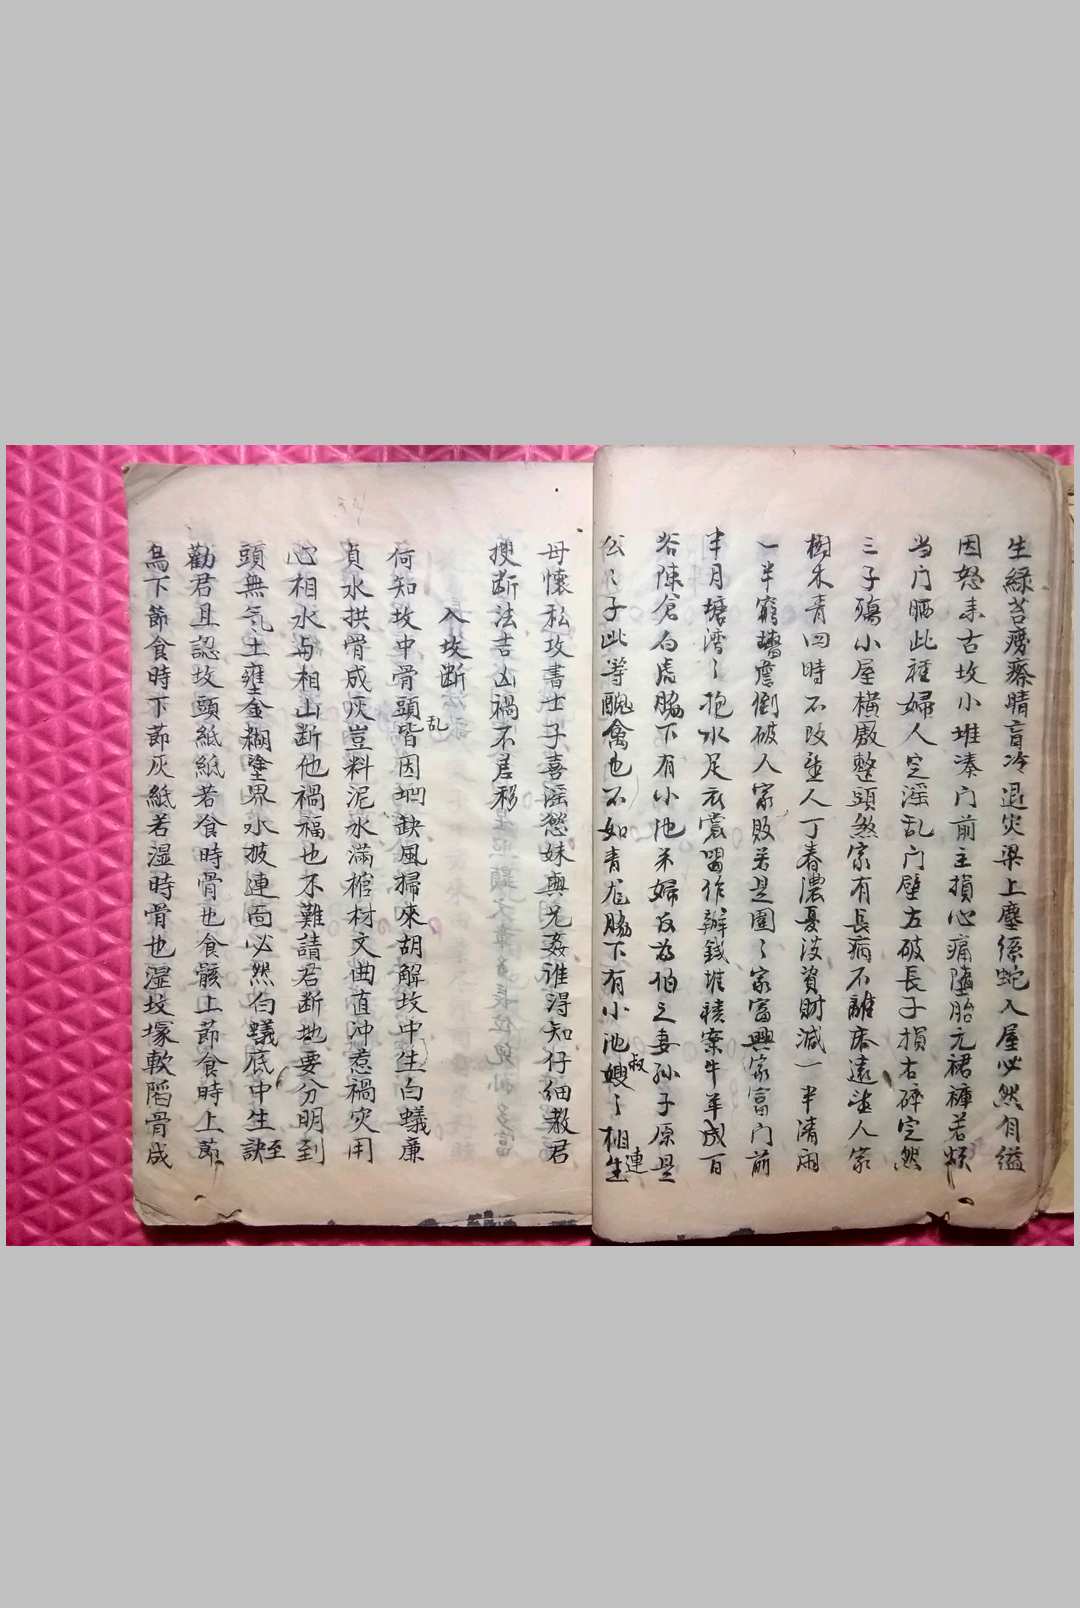 生綠苔癆瘵晴盲冷退灾梁上塵絲蛇入屋必然自縊
因怒未古坟小堆湊门前主損心痛墮胎元裙褲若
当门晒此種婦人定淫乱门壁左破長子損右碎定然
三子殤小屋横厫整頭煞家有長病不離床遠望人家
樹木青四時不改望人丁春濃憂没資財減一半清雨
一半窮墻詹倒破人家敗若是圍〻家富興家富门前
半月塘湾〻抱水足衣裳置作辦錢堆積案牛羊成百
谷陳倉白虎脇下有小池弟婦反为伯之妻孙子原是
公〻子此等醜禽也不如青龙脇下有小池嫂叔〻相連生
母懷私攻書士子喜淫慾妹與兄姦谁得知仔细教君
搜断法吉凶禍不居移
入坟断
何知坟中骨頭乱皆因坳缺風掃來胡解坟中生白蟻廉
貞水拱骨成灰豈料泥水滿棺材文曲直冲惹禍灾用
心相水与相山断他禍福也不難請君断地要分明到
頭無気土壅金糊塗界水披連面必然白蟻底中生訣至
勸君且認坟頭紙紙若食時骨也食骸上節食時上節
烏下節食時下節灰紙若湿時骨也湿坟塚軟陷骨成